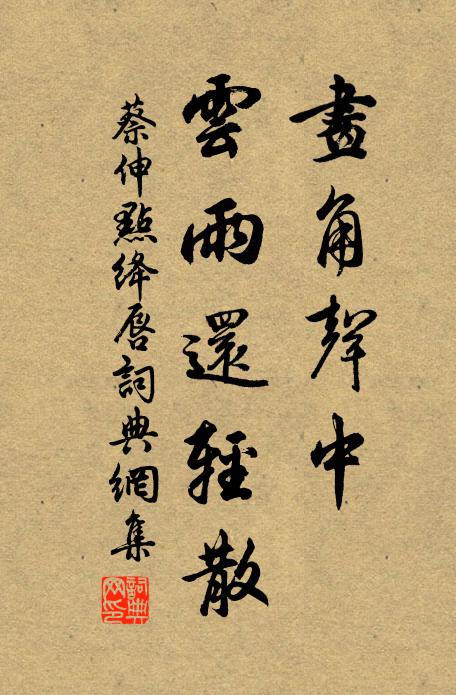 畫角聲中
雲雨還輕散
蔡伸點絳唇詞典網集
詞典網印